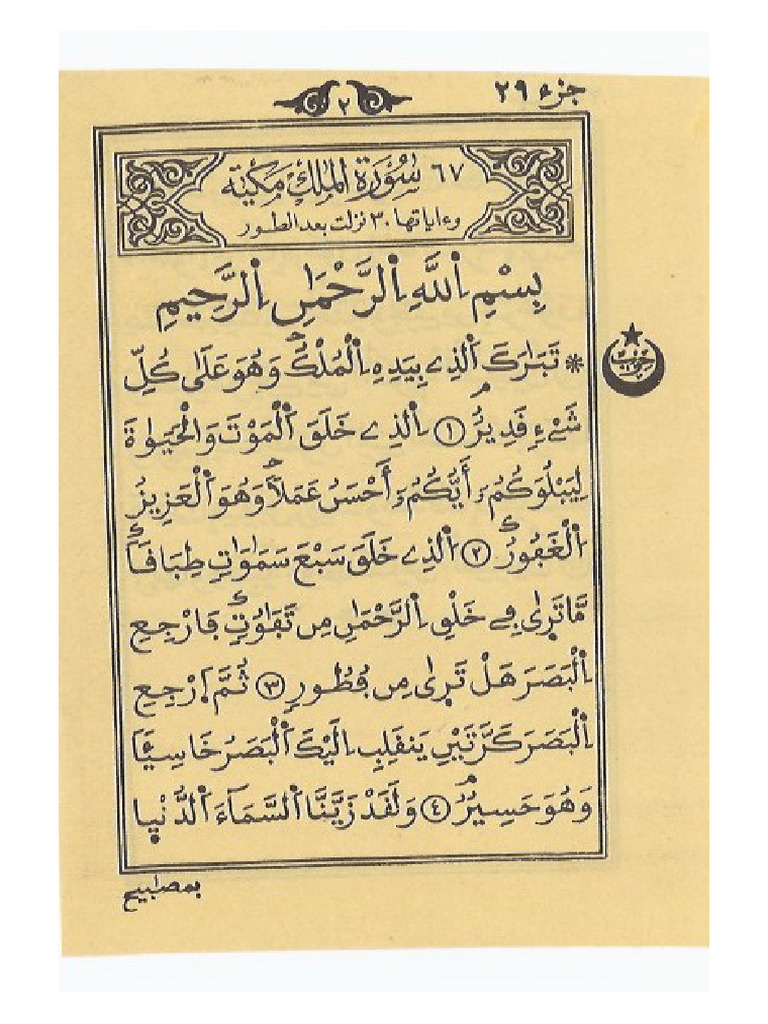 جزء ٢٩
٢
٦٧ سُورَةُ الْمُلْكِ مَكِّيَّة
وءاياتها ٣٠ نزلت بعد الطور
بِسْمِ اِ۬للَّهِ اِ۬لرَّحْمَٰنِ اِ۬لرَّحِيمِ
* تَبَٰرَكَ اَ۬لذِے بِيَدِهِ اِ۬لْمُلْكُ وَهُوَ عَلَىٰ كُلِّ
حزب
شَےْءٖ قَدِيرٌ ١ اِ۬لذِے خَلَقَ اَ۬لْمَوْتَ وَالْحَيَوٰةَ
لِيَبْلُوَكُمُۥٓ أَيُّكُمُۥٓ أَحْسَنُ عَمَلاٗ وَهُوَ اَ۬لْعَزِيزُ
اُ۬لْغَفُورُ ٢ اُ۬لذِے خَلَقَ سَبْعَ سَمَٰوَٰتٖ طِبَاقاٗ
مَّا تَر۪ىٰ فِے خَلْقِ اِ۬لرَّحْمَٰنِ مِن تَفَٰوُتٖ فَارْجِعِ
اِ۬لْبَصَرَ هَلْ تَر۪ىٰ مِن فُطُورٖ ٣ ثُمَّ اَ۪رْجِعِ
اِ۬لْبَصَرَ كَرَّتَيْنِ يَنقَلِبِ اِلَيْكَ اَ۬لْبَصَرُ خَاسِئاٗ
وَهُوَ حَسِيرٌ ٤ وَلَقَدْ زَيَّنَّا اَ۬لسَّمَآءَ اَ۬لدُّنْي۪ا
بمصٰبيح